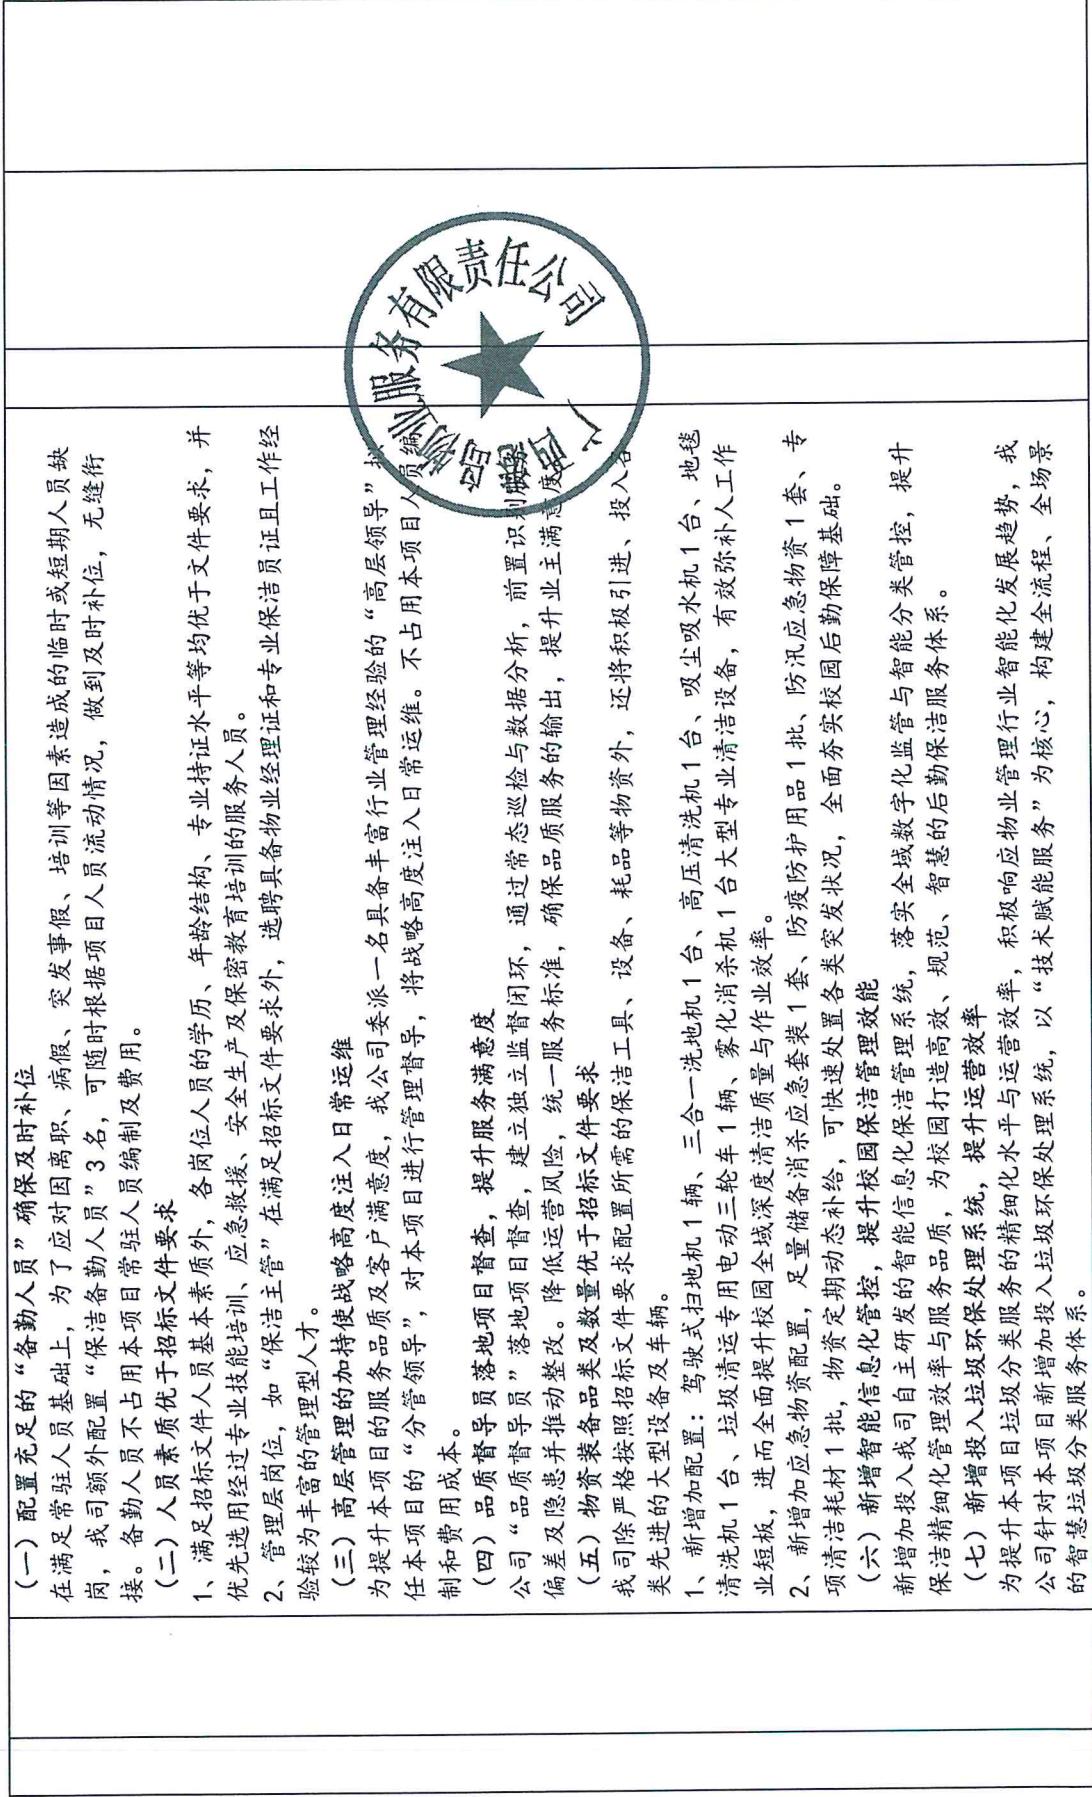 （一）配置充足的“备勤人员”确保及时补位
在满足常驻人员基础上，为了应对因离职、病假、突发事假、培训等因素造成的临时或短期人员缺
岗，我司额外配置“保洁备勤人员”3名，可随时根据项目人员流动情况，做到及时补位，无缝衔
接。备勤人员不占用本项目常驻人员编制及费用。
（二）人员素质优于招标文件要求
1、满足招标文件人员基本素质外，各岗位人员的学历、年龄结构、专业持证水平等均优于文件要求，并
优先选用经过专业技能培训、应急救援、安全生产及保密教育培训的服务人员。
2、管理层岗位，如“保洁主管”在满足招标文件要求外，选聘具备物业经理证和专业保洁员证且工作经
验较为丰富的管理型人才。
（三）高层管理的加持使战略高度注入日常运维
为提升本项目的服务品质及客户满意度，我公司委派一名具备丰富行业管理经验的“高层领导”担
任本项目的“分管领导”，对本项目进行管理督导，将战略高度注入日常运维。不占用本项目人员编
制和费用成本。
（四）品质督导员落地项目督查，提升服务满意度
公司“品质督导员”落地项目督查，建立独立监督闭环，通过常态巡检与数据分析，前置识别服务
偏差及隐患并推动整改。降低运营风险，统一服务标准，确保品质服务的输出，提升业主满意度。
（五）物资装备品类及数量优于招标文件要求
我司除严格按照招标文件要求配置所需的保洁工具、设备、耗品等物资外，还将积极引进、投入各
类先进的大型设备及车辆。
1、新增加配置：驾驶式扫地机1辆、三合一洗地机1台、高压清洗机1台、吸尘吸水机1台、地毯
清洗机1台、垃圾清运专用电动三轮车1辆、雾化消杀机1台大型专业清洁设备，有效弥补人工作
业短板，进而全面提升校园全域深度清洁质量与作业效率。
2、新增加应急物资配置，足量储备消杀应急套装1套、防疫防护用品1批、防汛应急物资1套、专
项清洁耗材1批，物资定期动态补给，可快速处置各类突发状况，全面夯实校园后勤保障基础。
（六）新增智能信息化管控，提升校园保洁管理效能
新增加投入我司自主研发的智能信息化保洁管理系统，落实全域数字化监管与智能分类管控，提升
保洁精细化管理效率与服务品质，为校园打造高效、规范、智慧的后勤保洁服务体系。
（七）新增投入垃圾环保处理系统，提升运营效率
为提升本项目垃圾分类服务的精细化水平与运营效率，积极响应物业管理行业智能化发展趋势，我
公司针对本项目新增加投入垃圾环保处理系统，以“技术赋能服务”为核心，构建全流程、全场景
的智慧垃圾分类服务体系。
物业服务有限责任公司